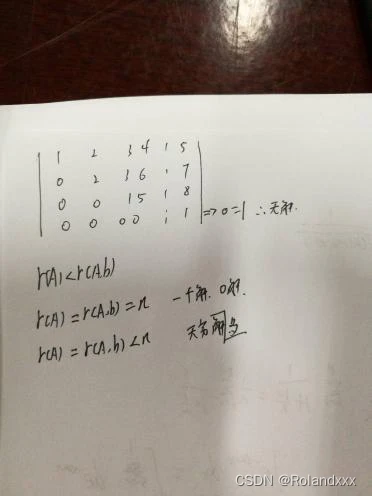 1 2 3 4 ⋮ 5
0 2 3 6 ⋮ 7
0 0 1 5 ⋮ 8
0 0 0 0 ⋮ 1 => 0=1 ∴无解.
r(A)<r(A,b)
r(A)=r(A,b)=n 一个解. 0解.
r(A)=r(A,b)<n 无穷解
CSDN @Rolandxxx